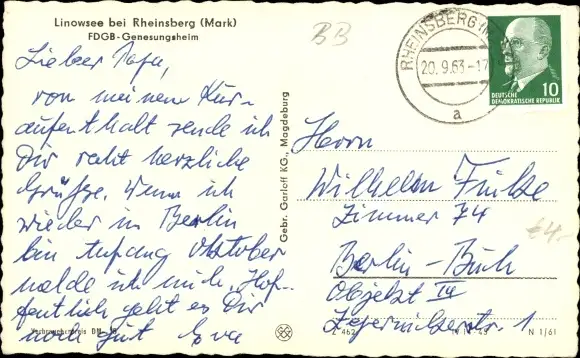 Linowsee bei Rheinsberg (Mark)
FDGB-Genesungsheim
BB
Lieber Papa,
von meinem Kur-
aufenthalt sende ich
Dir recht herzliche
Grüße. Wenn ich
wieder in Berlin
bin Anfang Oktober
melde ich mich. Hof-
fentlich geht es Dir
noch gut Eva
Verbraucherpreis DM
Gebr. Garloff KG., Magdeburg
RHEINSBERG
20.9.63-17
a
10
DEUTSCHE
DEMOKRATISCHE REPUBLIK
Herrn
Wilhelm Funke
Zimmer 74
€4,-
Berlin-Buch
Objekt III
Zepernickerstr. 1
N 1/61